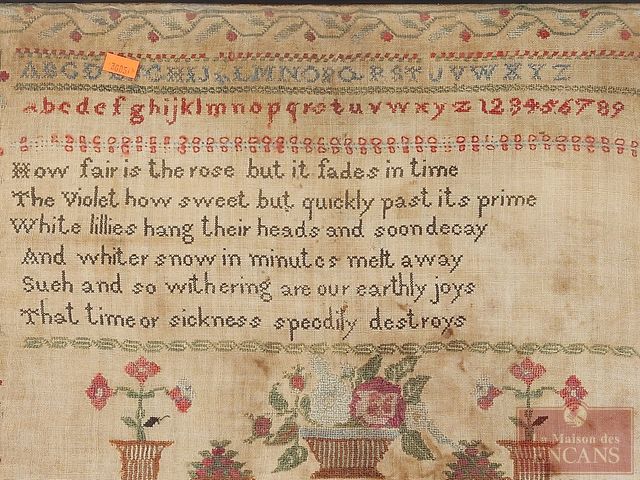 ABCDEFGHIJKLMNOPQRSTUVWXYZ
abcdefghijklmnopqrstuvwxyz123456789
How fair is the rose but it fades in time
The Violet how sweet but quickly past its prime
White lillies hang their heads and soon decay
And whiter snow in minutes melt away
Such and so withering are our earthly joys
That time or sickness speedily destroys
La Maison des
ENCANS